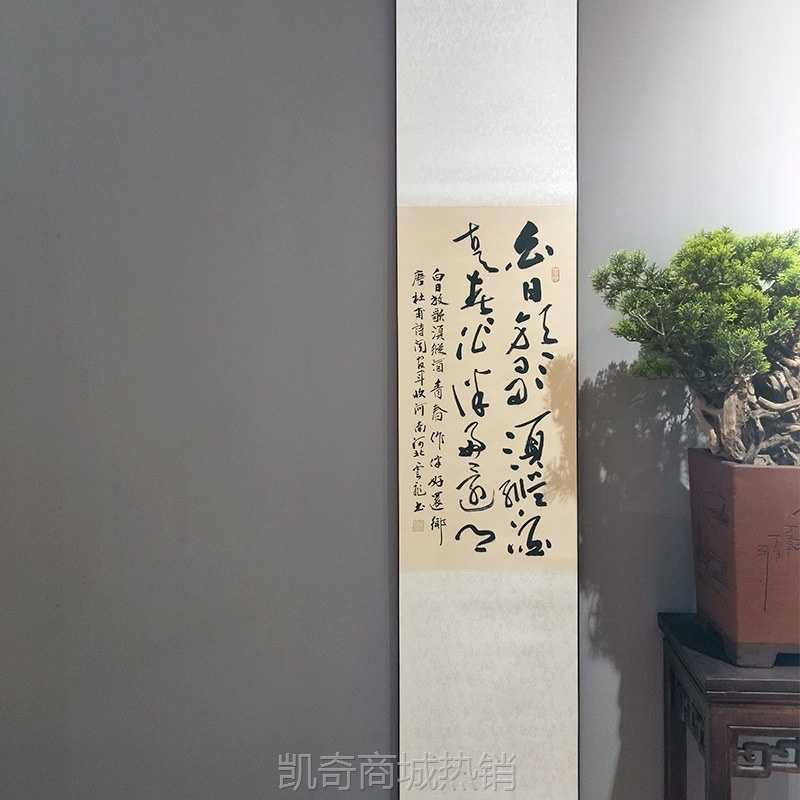 白日放歌須縱酒
青春作伴好還鄉
白日放歌須縱酒青春作伴好還鄉
唐杜甫詩聞官軍收河南河北 雲龍書
凯奇商城热销